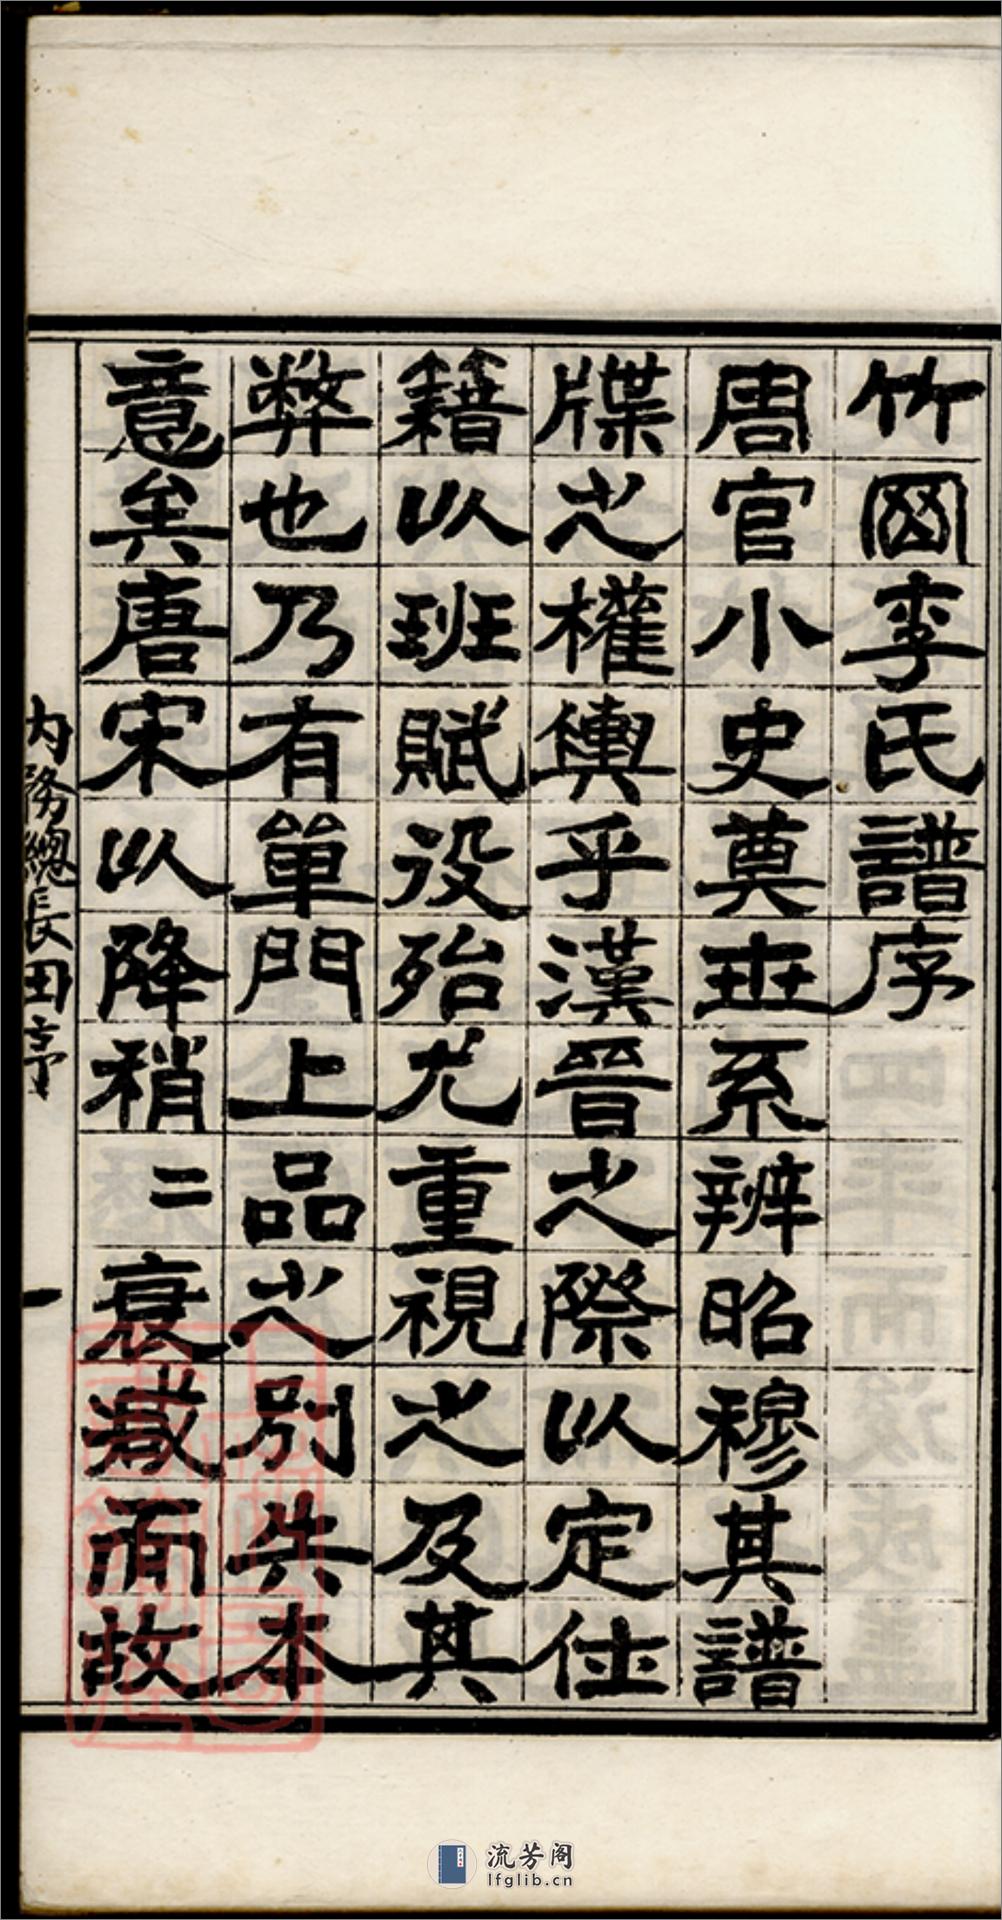 竹岡李氏譜序
周官小史奠世系辨昭穆其譜
牒之權輿乎漢晉之際以定仕
籍以班賦役殆尤重視之及其
弊也乃有單門上品之別失本
意矣唐宋以降稍二衰減而故
內務總長田序
一
流芳阁
lfglib.cn